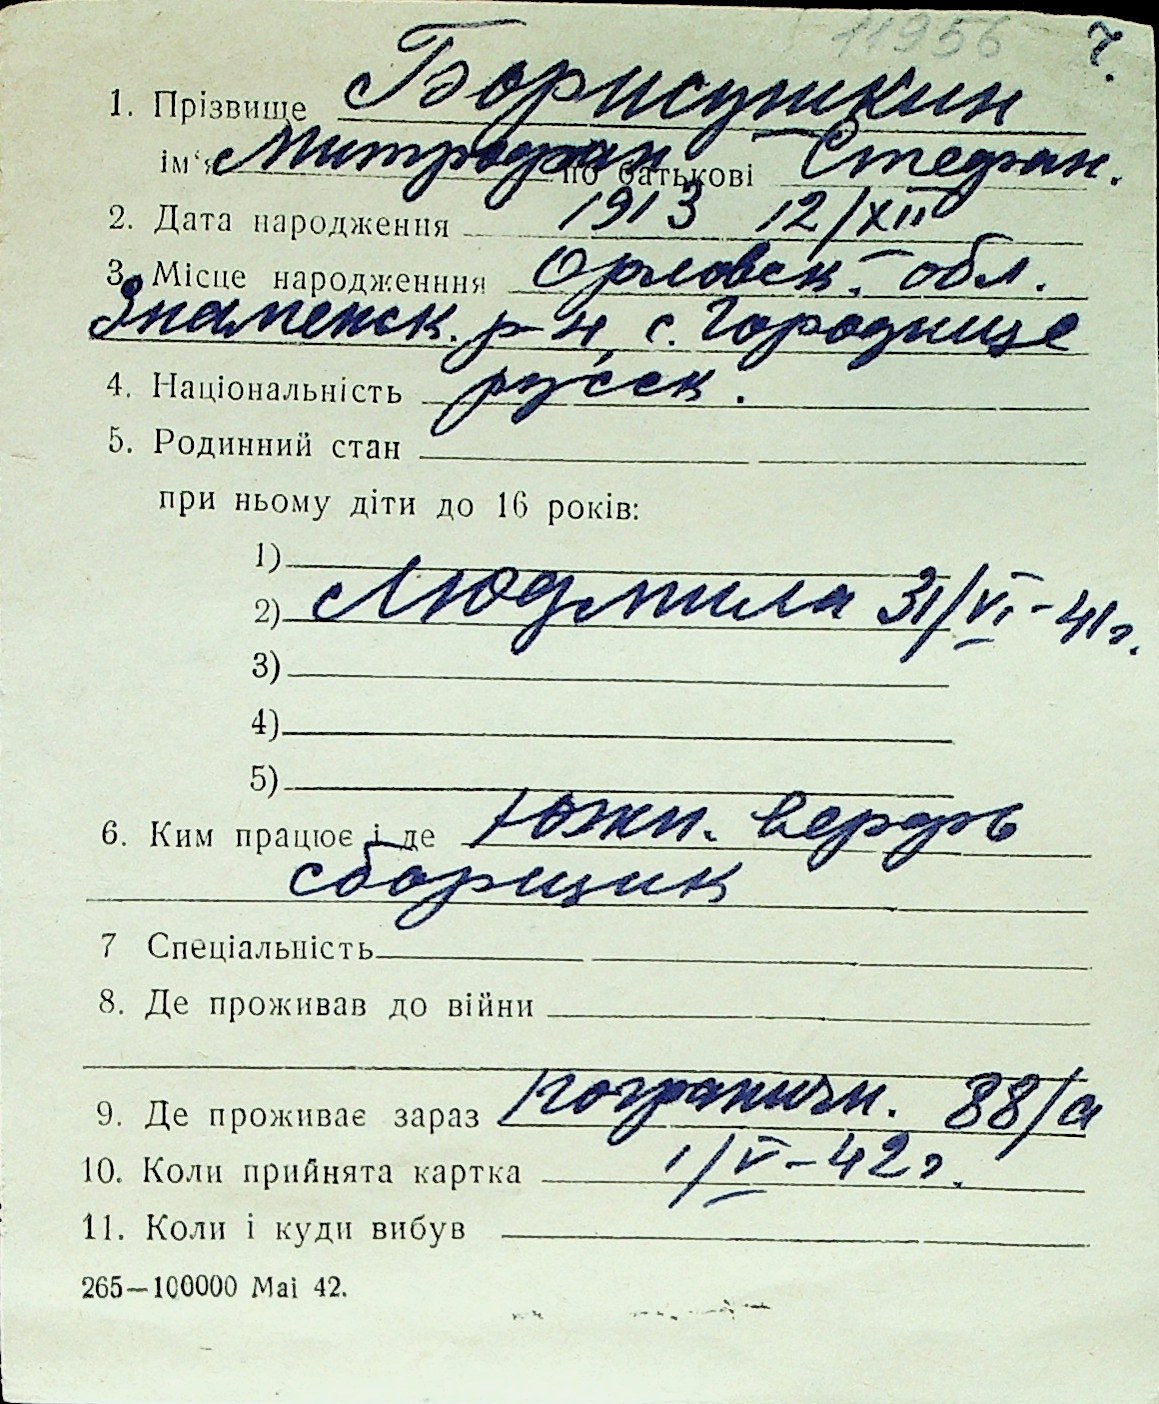 11956 7.
1. Прізвище Борисушкин
ім'я Митрофан по батькові Стефан.
2. Дата народження 1913 12/XII
3. Місце народженння Орловск. обл.
Знаменск. р-н, с. Городище
4. Національність русск.
5. Родинний стан
при ньому діти до 16 років:
1)
2) Людмила 31/VI-41г.
3)
4)
5)
6. Ким працює і де Южн. верфь
сборщик
7 Спеціальність
8. Де проживав до війни
9. Де проживає зараз Пограничн. 88/а
10. Коли прийнята картка 1/V-42г.
11. Коли і куди вибув
265—100000 Маі 42.